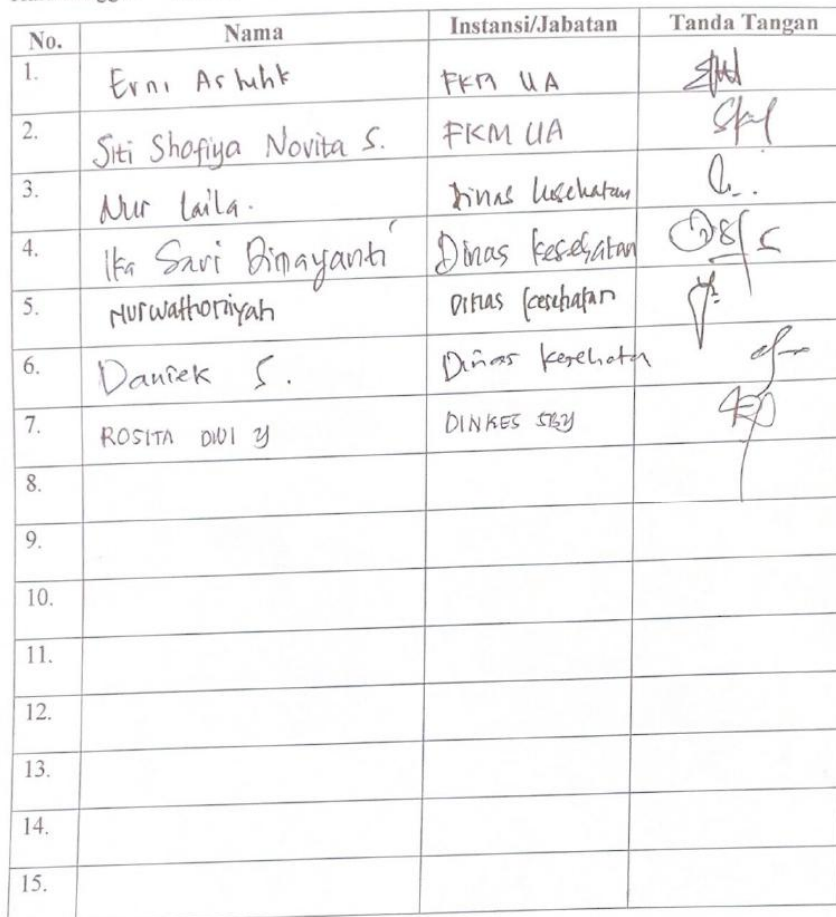 No. Nama Instansi/Jabatan Tanda Tangan
1. Erni Astutik FKM UA
2. Siti Shofiya Novita S. FKM UA
3. Nur Laila. Dinas Kesehatan
4. Ika Sari Dinas kesehatan
5. Nurwathoniyah Dinas kesehatan
6. Daniek S. Dinas kesehatan
7. ROSITA DWI Y DINKES SBY
8.
9.
10.
11.
12.
13.
14.
15.